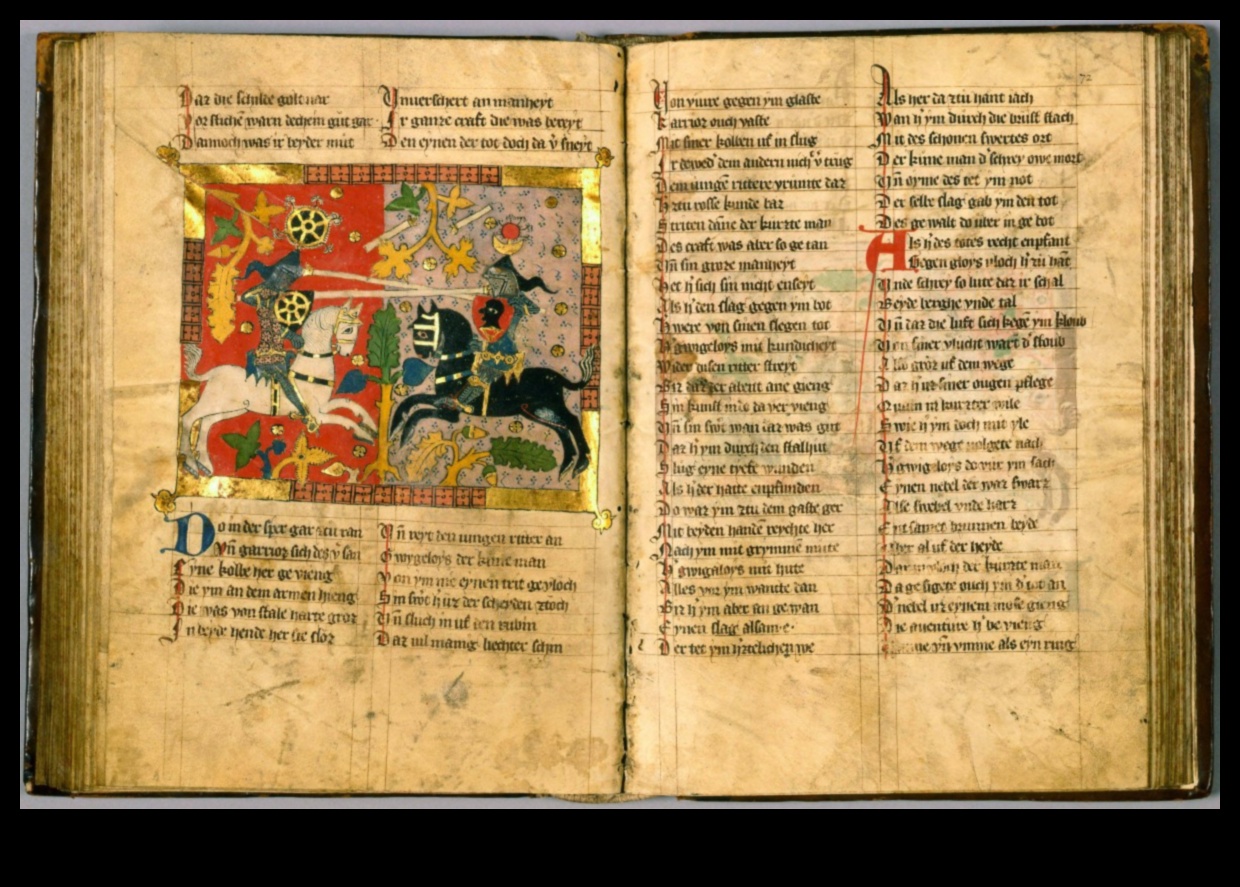 Daz die schilde golt var
Vor stiche warn dechein gut gar
Dannoch was ir beyder mut
Vnuerschert an manheyt
Ir ganze craft die was bereyt
Den eynen der tot doch da v̓ sneyt
Do in der sper gar zcu ran
Vn̄ garrioz sich des v̓ san
Eyne kolbe her ge vieng
Die ym an dem armen hieng
Die was von stale harte groz
In beyde hende her sie sloz
Vn̄ reyt den iungen ritter an
Gwygeloys der kune man
Von ym nie eynen trit ge vloch
Sin swͦt h̓ uz der scheyden ztoch
Vn̄ sluch in uf den rubin
Daz vil manig liechter schin
Von viure gegen ym glaste
Karrioz ouch vaste
Mit siner kolben uf in slug
Ir dewed̓ dem andern nich v̓ trug
Dem iungē rittere yrunte daz
H̓ ztu rosse kunde baz
Striten dāne der kurzte man
Des craft was aber so ge tan
Vn̄ sin groze manheyt
Het h̓ sich sin nicht entseyt
Als h̓ den slag gegen ym bot
H̓ were von sinen slegen tot
H̓ gwigeloys mit kundicheyt
Wider disen ritter streyt
Biz daz der abent ane gieng
Sin kunst in do da ver vieng
Vn̄ sin swͦt wan iz was gut
Daz h̓ ym durch den stalhut
Slug eyne tyefe wunden
Als h̓ der hatte enpfunden
Do waz ym ztu dem gaste ger
Mit beyden handē reychte her
Nach ym mit grymmē mute
H̓ gwigaloys mit hute
Alles vor ym wante dan
Biz h̓ ym aber an ge wan
Eynen slag alsam e
Der tet ym h̓rtzelichen we
72
Als her da ztu hant iach
Wan h̓ ym durch die brust stach
Mit des schonen swertes ort
Der kune man d̓ schrey owe mort
Vn̄ oyme des tet ym not
Der selbe slag gab ym den tot
Des ge walt do uber in ge bot
Als h̓ des totes recht enpfant
Gegen gloys vloch h̓ zu hāt
Vnde schrey so lute daz ir schal
Beyde berghe vnde tal
Vn̄ daz die luft sich kegē ym kloub
Von siner vlucht wart d̓ stoub
Also groz uf dem wege
Daz h̓ uz siner ougen pflege
Quam in kurzter wile
Swie h̓ ym doch mit yle
Uf dem wege volgete nach
H̓ gwigeloys do vor ym sach
Eynen nebel der was swarz
Alse swebel vnde harz
Ent samet brunnen beyde
Aber al uf der heyde
Dar in vloch der kurzte man
Da ge sigete ouch ym d̓ tot an
D̓ nebel uz eynem mose gieng
Die auenture h̓ be vieng
vn̄ vmme als eyn ring